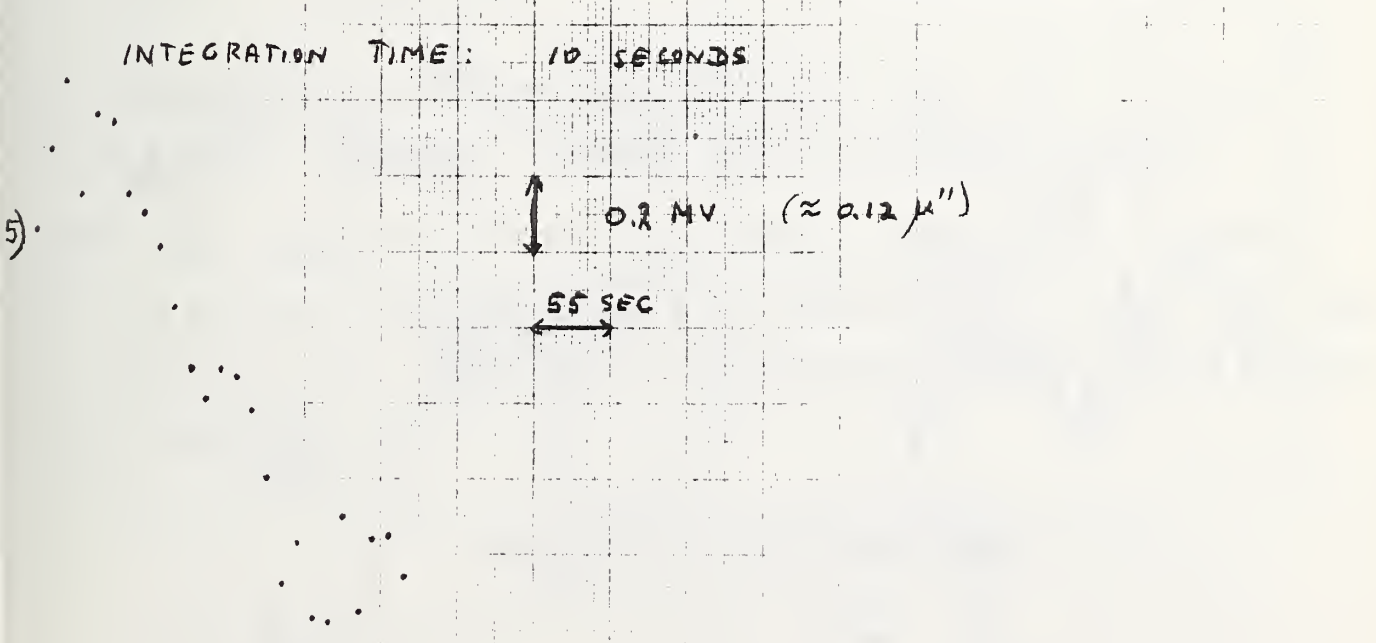 INTEGRATION TIME: 10 SECONDS
5)
0.2 MV (≈ 0.12 μ")
55 SEC